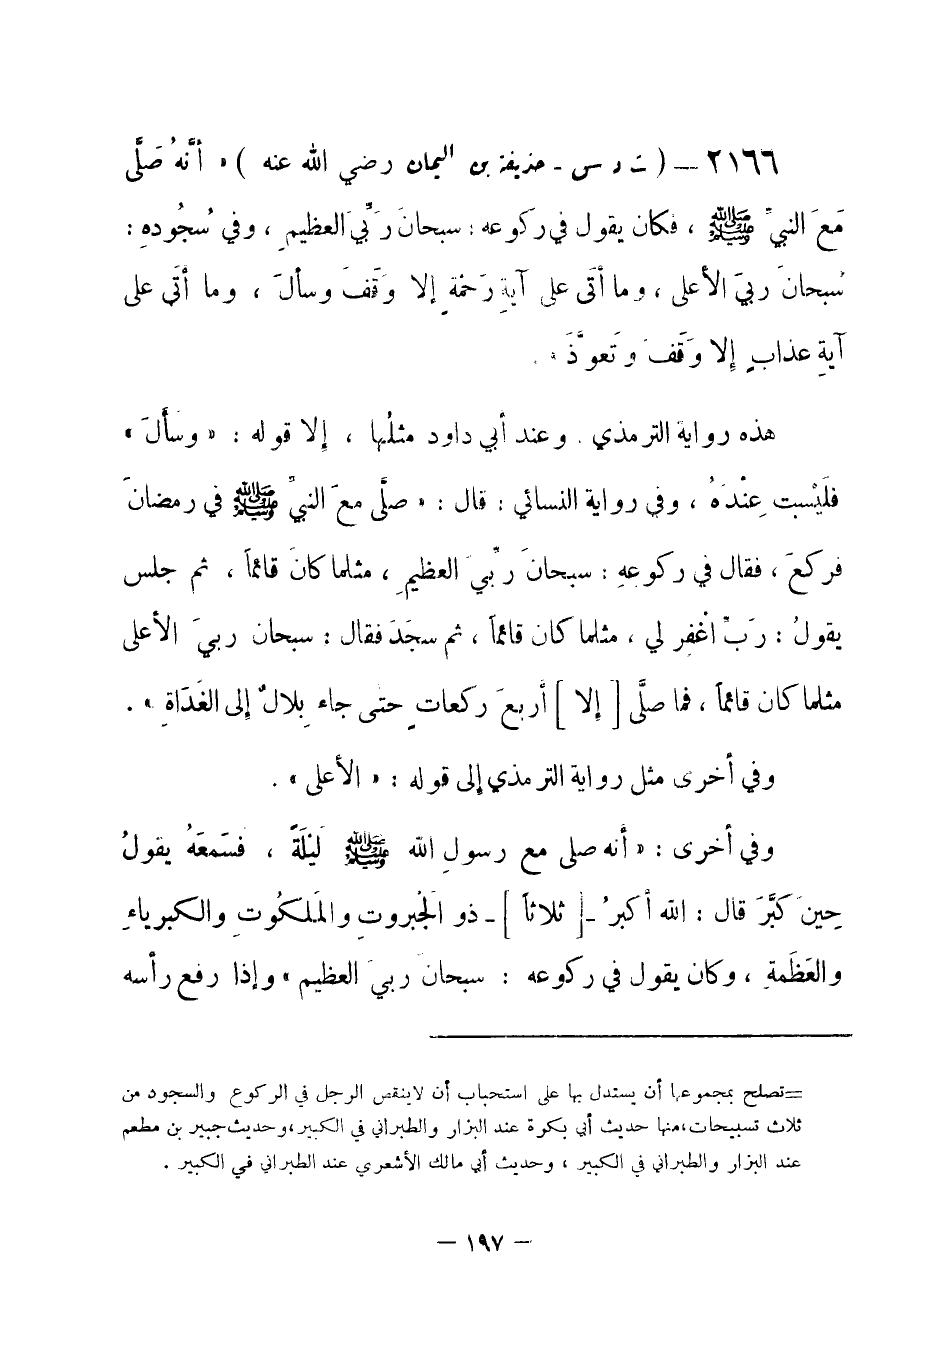 ٢١٦٦ — ( ت د س - حذيفة بن اليمان رضي الله عنه ) « أنَّهُ صَلَّى
مَعَ النبيِّ ﷺ ، فكان يقول في ركوعه : سبحانَ رَبِّيَ العظيمِ ، وفي سُجُودهِ :
سُبحانَ ربيَ الأعلى ، وما أتَى على آيةِ رَحْمَةٍ إلا وَقَفَ وسألَ ، وما أتَى على
آيةِ عذابٍ إِلا وَقَفَ وتَعوَّذَ » .
هذه رواية الترمذي . وعند أبي داود مثلُها ، إِلا قوله : « وسأَلَ »
فلَيْست عِنْدَهُ ، وفي رواية النسائي : قال : « صلَّى معَ النبيِّ ﷺ في رمضانَ
فركعَ ، فقال في ركوعِهِ : سبحانَ رَبِّيَ العظيمِ ، مثلما كانَ قائماً ، ثم جلس
يقولُ : رَبِّ اغْفِر لي ، مثلما كان قائماً ، ثم سجَدَ فقال : سبحان ربيَ الأعلى
مثلما كان قائماً ، فما صلَّى [ إلا ] أربعَ ركعاتٍ حتى جاء بِلالٌ إلى الغَدَاةِ » .
وفي أخرى مثل رواية الترمذي إلى قوله : « الأعلى » .
وفي أخرى : « أنه صلى مع رسولِ الله ﷺ لَيْلَةً ، فسَمعَهُ يقولُ
حِينَ كَبَّرَ قال : الله أكبرُ - [ ثلاثاً ] - ذو الجُبروتِ والمَلكُوتِ والكبرياءِ
والعَظَمةِ ، وكان يقول في ركوعه : سبحانَ ربيَ العظيم » وإذا رفع رأسه
=تصلح بمجموعها أن يستدل بها على استحباب أن لاينقص الرجل في الركوع والسجود من
ثلاث تسبيحات،منها حديث أبي بكرة عند البزار والطبراني في الكبير،وحديث جبير بن مطعم
عند البزار والطبراني في الكبير ، وحديث أبي مالك الأشعري عند الطبراني في الكبير .
— ١٩٧ —